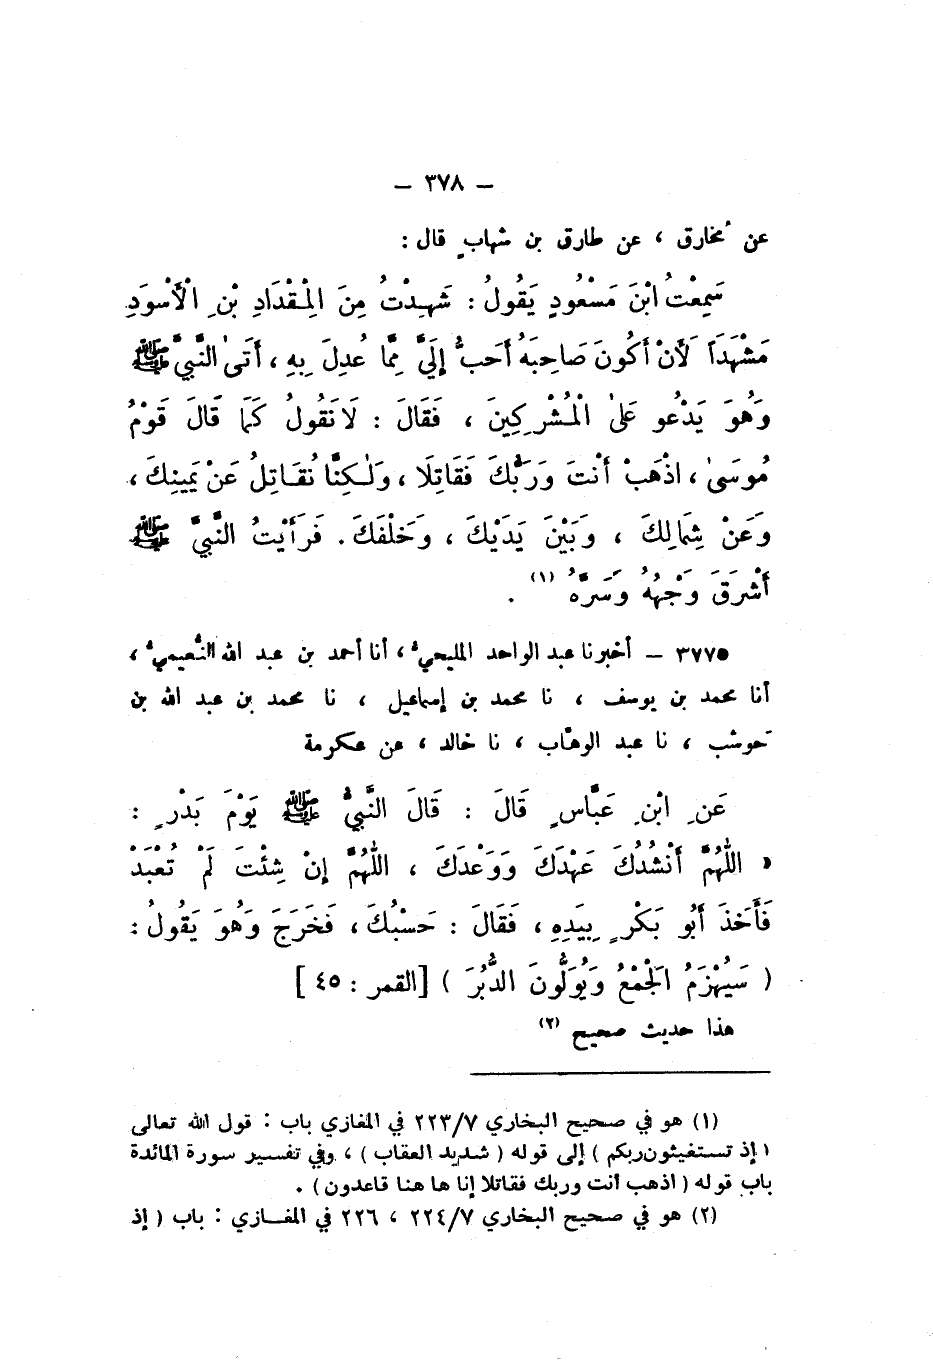 — ٣٧٨ —
عن مُخارق ، عن طارق بن شهابٍ قال :
سَمِعْتُ ابْنَ مَسْعُودٍ يَقُولُ : شَهِدْتُ مِنَ الْمِقْدَادِ بْنِ الْأَسْوَدِ
مَشْهَدَاً لَأَنْ أَكُونَ صَاحِبَهُ أَحَبُّ إِلَيَّ مِمَّا عُدِلَ بِهِ ، أَتَىٰ النَّبِيَّ ﷺ
وَهُوَ يَدْعُو عَلَىٰ الْمُشْرِكِينَ ، فَقَالَ : لَا نَقُولُ كَمَا قَالَ قَوْمُ
مُوسَىٰ ، اذْهَبْ أَنْتَ وَرَبُّكَ فَقَاتِلَا ، وَلَٰكِنَّا نُقَاتِلُ عَنْ يَمِينِكَ ،
وَعَنْ شِمَالِكَ ، وَبَيْنَ يَدَيْكَ ، وَخَلْفَكَ . فَرَأَيْتُ النَّبِيَّ ﷺ
أَشْرَقَ وَجْهُهُ وَسَرَّهُ (١) .
٣٧٧٥ – أخبرنا عبد الواحد المليحيُّ ، أنا أحمد بن عبد الله النُّعيميُّ ،
أنا محمد بن يوسف ، نا محمد بن إسماعيل ، نا محمد بن عبد الله بن
حَوشب ، نا عبد الوهّاب ، نا خالد ، عن عكرمة
عَنِ ابْنِ عَبَّاسٍ قَالَ : قَالَ النَّبِيُّ ﷺ يَوْمَ بَدْرٍ :
« اللَّهُمَّ أَنْشُدُكَ عَهْدَكَ وَوَعْدَكَ ، اللَّهُمَّ إِنْ شِئْتَ لَمْ تُعْبَدْ
فَأَخَذَ أَبُو بَكْرٍ بِيَدِهِ ، فَقَالَ : حَسْبُكَ ، فَخَرَجَ وَهُوَ يَقُولُ :
( سَيُهْزَمُ الْجَمْعُ وَيُوَلُّونَ الدُّبُرَ ) [القمر : ٤٥]
هذا حديث صحيح (٢)
(١) هو في صحيح البخاري ٢٢٣/٧ في المغازي باب : قول الله تعالى
( إذ تستغيثون ربكم ) إلى قوله ( شديد العقاب ) ، وفي تفسير سورة المائدة
باب قوله ( اذهب أنت وربك فقاتلا إنا ها هنا قاعدون ) .
(٢) هو في صحيح البخاري ٢٢٤/٧ ، ٢٢٦ في المغازي : باب ( إذ